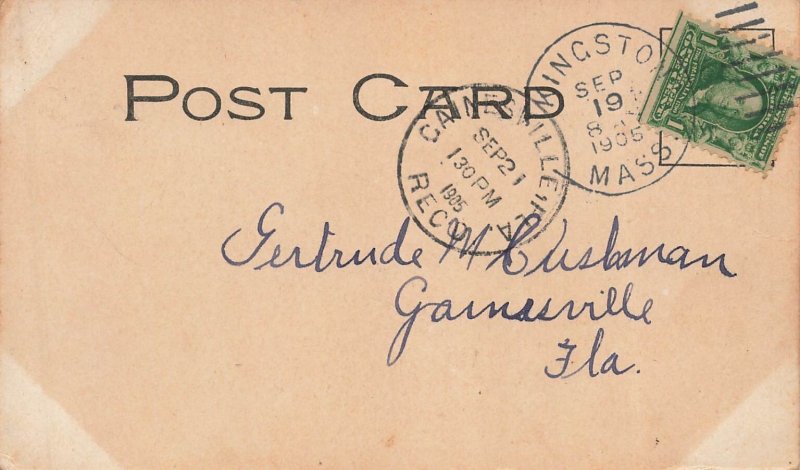 POST CARD
WINGSTON
SEP
19
1905
MASS.
GAINESVILLE
SEP 21
130 PM
1905
REC'D
Gertrude M Cushman
Gainesville
Fla.